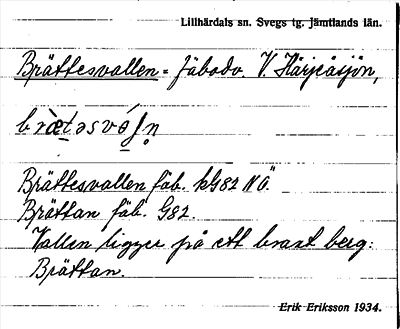 Lillhärdals sn. Svegs tg. Jämtlands län.
Brättesvallen = fäbodv. V. Härjeåsjön,
Brättesvallen fäb. kG82 NÖ.
Brättan fäb. G82.
Vallen ligger på ett brant berg:
Brättan.
Erik Eriksson 1934.